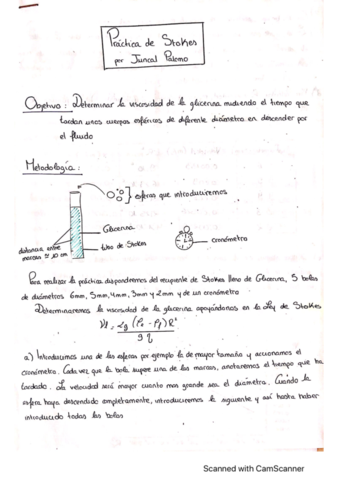 Práctica de Stokes
por Juncal Palomo
Objetivo: Determinar la viscosidad de la glicerina midiendo el tiempo que
tardan unos cuerpos esféricos de diferente diámetro en descender por
el fluido
Metodología:
esferas que introduciremos
Glicerina
distancia entre
marcas ≃ 10 cm
tubo de Stokes
cronómetro
Para realizar la práctica dispondremos del recipiente de Stokes lleno de Glicerina, 5 bolas
de diámetros 6mm, 5mm, 4mm, 3mm y 2mm y de un cronómetro
Determinaremos la viscosidad de la glicerina apoyándonos en la Ley de Stokes
a) Introducimos una de las esferas por ejemplo la de mayor tamaño y accionamos el
cronómetro. Cada vez que la bola supere una de las marcas, anotaremos el tiempo que ha
tardado. La velocidad será mayor cuanto mas grande sea el diámetro. Cuando la
esfera haya descendido completamente, introduciremos la siguiente y así hasta haber
introducido todas las bolas
Scanned with CamScanner